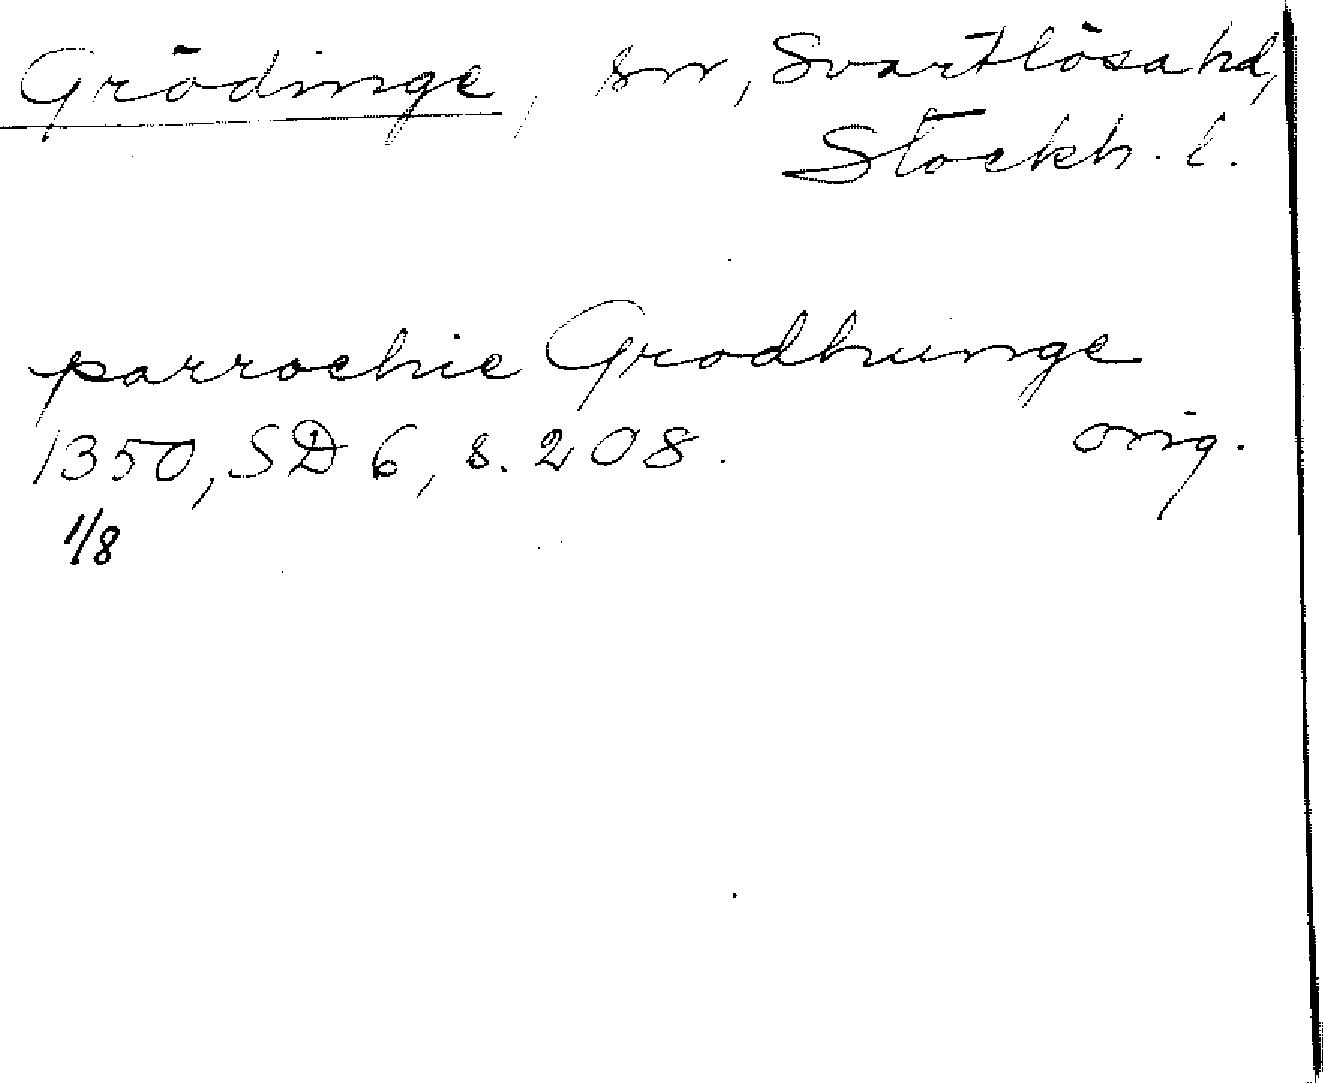 Grödinge, sn, Svartlösa hd,
Stockh. l.
parrochie Grodhunge
1350, SD 6, s. 208. orig.
1/8